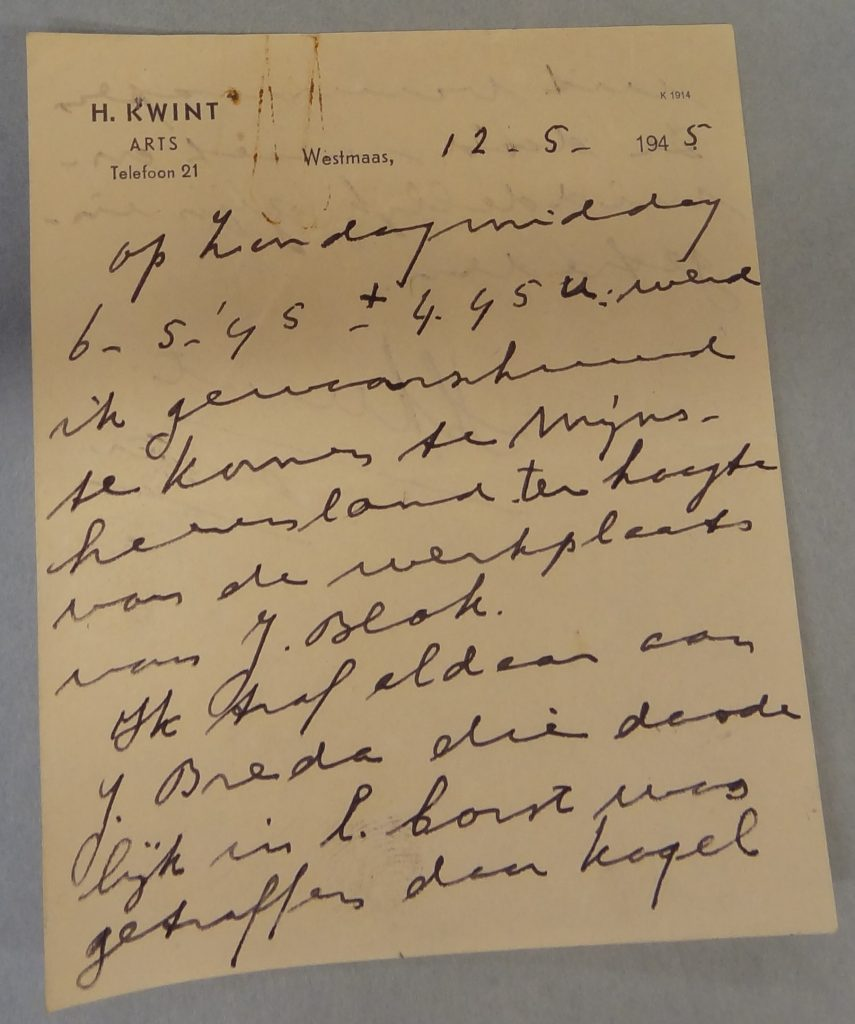 H. KWINT
ARTS
Telefoon 21
K 1914
Westmaas, 12-5-1945
op Zondagmiddag
6-5-'45 ± 4.45 u. werd
ik gewaarschuwd
te komen te Mijns-
heerenland ter hoogte
van de werkplaats
van J. Blok.
Ik trof aldaar aan
J. Breda die doode
lijk in l. borst was
getroffen door kogel